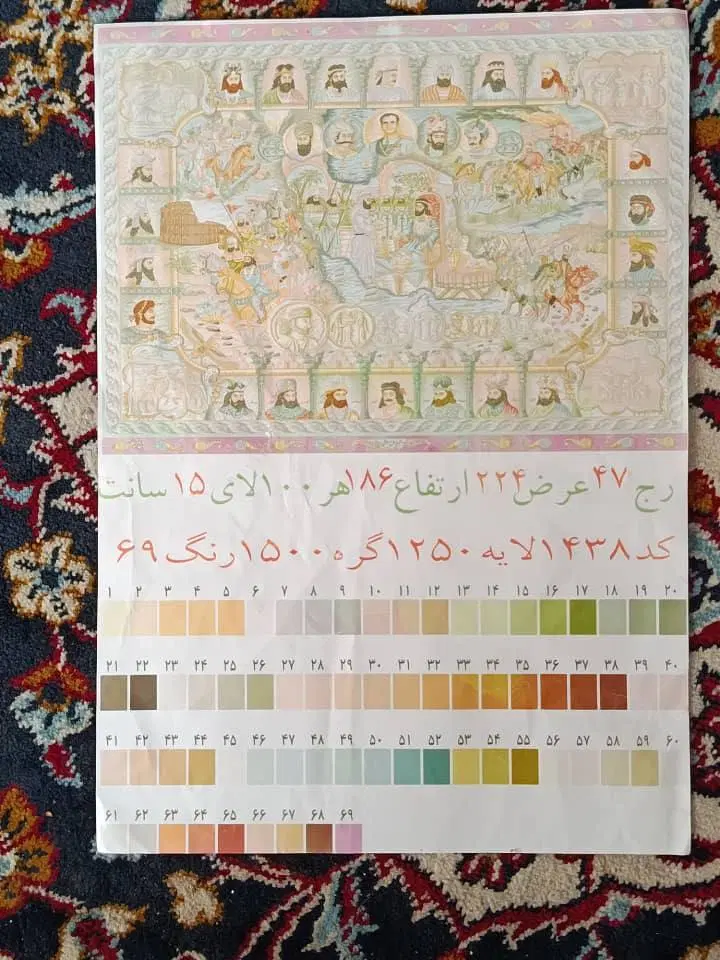 رج ۴۷ عرض ۲۲۴ ارتفاع ۱۸۶ هر ۱۰۰ لای ۱۵ سانت
کد ۱۴۳۸ لایه ۱۲۵۰ گره ۱۵۰۰ رنگ ۶۹
۱ ۲ ۳ ۴ ۵ ۶ ۷ ۸ ۹ ۱۰ ۱۱ ۱۲ ۱۳ ۱۴ ۱۵ ۱۶ ۱۷ ۱۸ ۱۹ ۲۰
۲۱ ۲۲ ۲۳ ۲۴ ۲۵ ۲۶ ۲۷ ۲۸ ۲۹ ۳۰ ۳۱ ۳۲ ۳۳ ۳۴ ۳۵ ۳۶ ۳۷ ۳۸ ۳۹ ۴۰
۴۱ ۴۲ ۴۳ ۴۴ ۴۵ ۴۶ ۴۷ ۴۸ ۴۹ ۵۰ ۵۱ ۵۲ ۵۳ ۵۴ ۵۵ ۵۶ ۵۷ ۵۸ ۵۹ ۶۰
۶۱ ۶۲ ۶۳ ۶۴ ۶۵ ۶۶ ۶۷ ۶۸ ۶۹